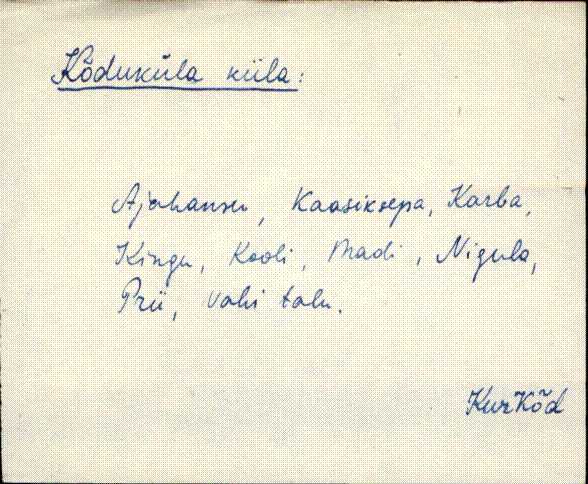 Kõduküla küla:
Ajahansu, Kaasiksepa, Karba,
Kingu, Kooli, Madi, Nigula,
Prii, Vahi talu.
KurKõd